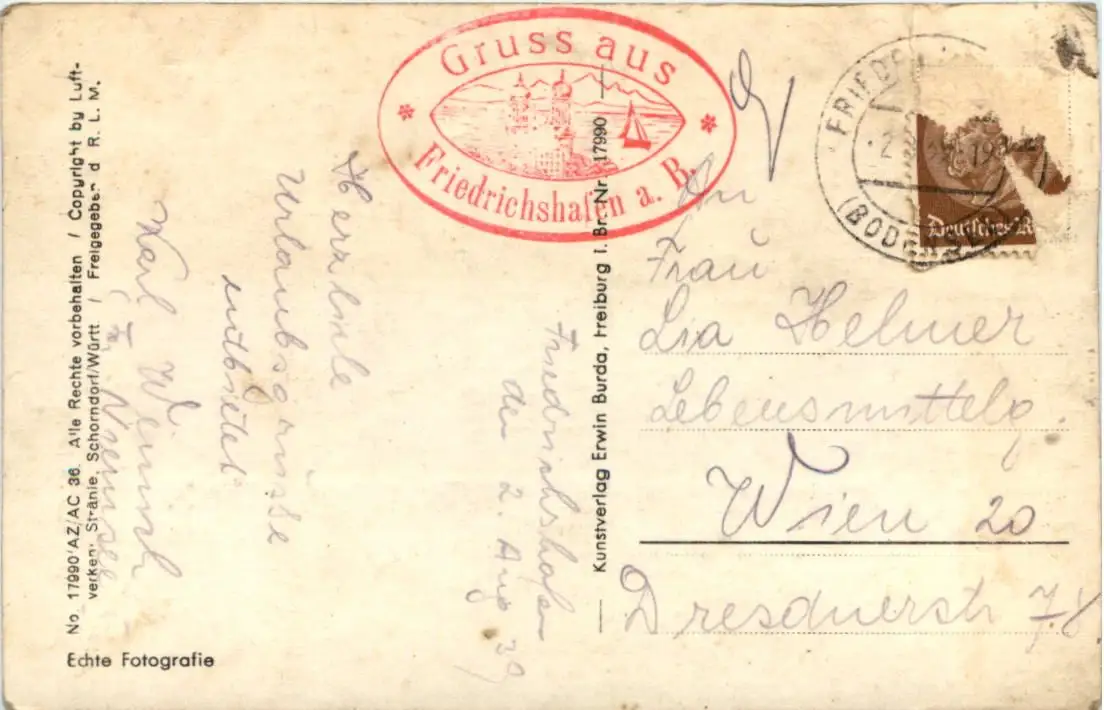 Gruss aus
Friedrichshafen a. B.
FRIEDR
2. 19
(BODENSEE)
Deutsches R
No 17990 AZ/AC 36. Alle Rechte vorbehalten / Copyright by Luft-
verkehr Strähle, Schorndorf/Württ / Freigegeben d R. L. M.
Echte Fotografie
Friedrichshafen
den 2. Aug 39
Herzliche
Urlaubsgrüsse
entbietet
Karl
Kunstverlag Erwin Burda, Freiburg i. Br. Nr. 17990
An
Frau
Lia Helmer
Lebensmittelg.
Wien 20
Dresdnerstr 78